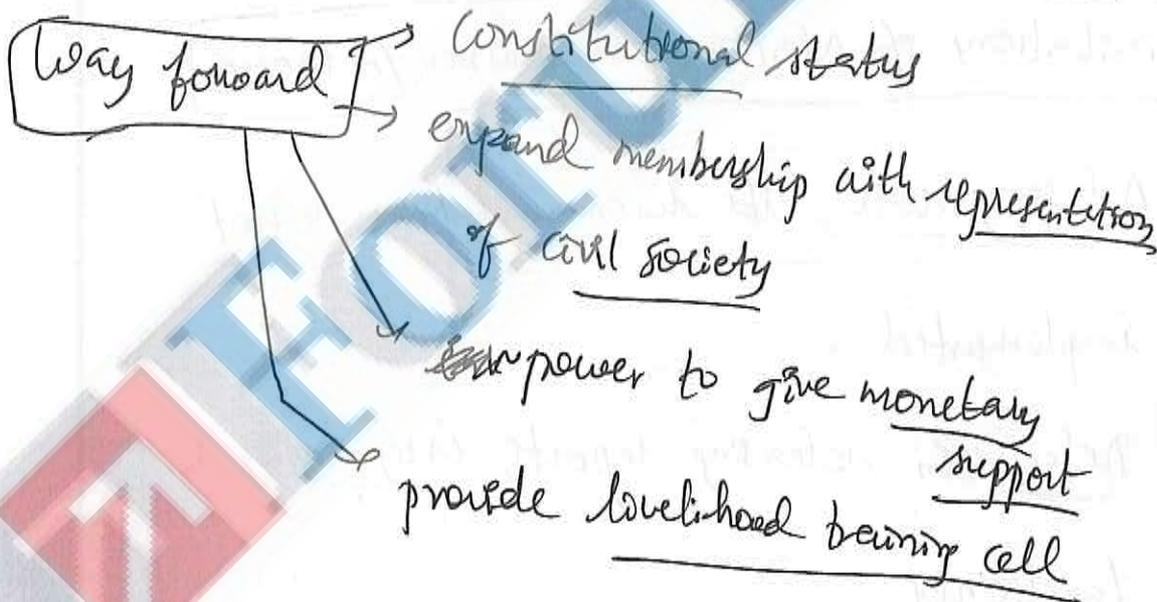 Way forward
Constitutional status
expand membership with representation
of civil society
power to give monetary
support
provide lovelihood training cell
Forum